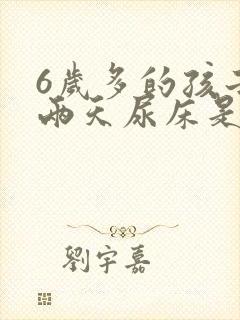 6歲多的孩子
兩天尿床是
劉宇嘉